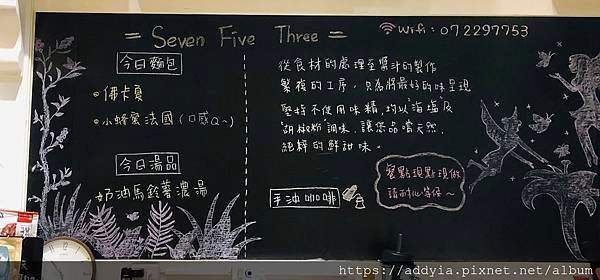 = Seven Five Three =
wifi: 072297753
今日麵包
佛卡夏
小蜂蜜法國(口感Q~)
今日湯品
奶油馬鈴薯濃湯
從食材的處理至醬汁的製作
繁複的工序,只為將最好的味呈現
堅持不使用味精,均以海塩及
胡椒粉調味,讓您品嚐天然、
純粹的鮮甜味。
手沖咖啡
餐點現點現做
請耐心等候~
https://addyia.pixnet.net/album